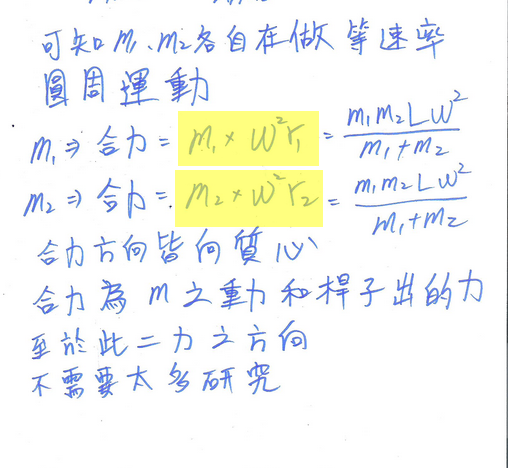 可知m₁、m₂各自在做等速率
圓周運動
m₁⇒合力=m₁×ω²r₁=m₁m₂Lω²/m₁+m₂
m₂⇒合力=m₂×ω²r₂=m₁m₂Lω²/m₁+m₂
合力方向皆向質心
合力為m之重力和桿子出的力
至於此二力之方向
不需要太多研究